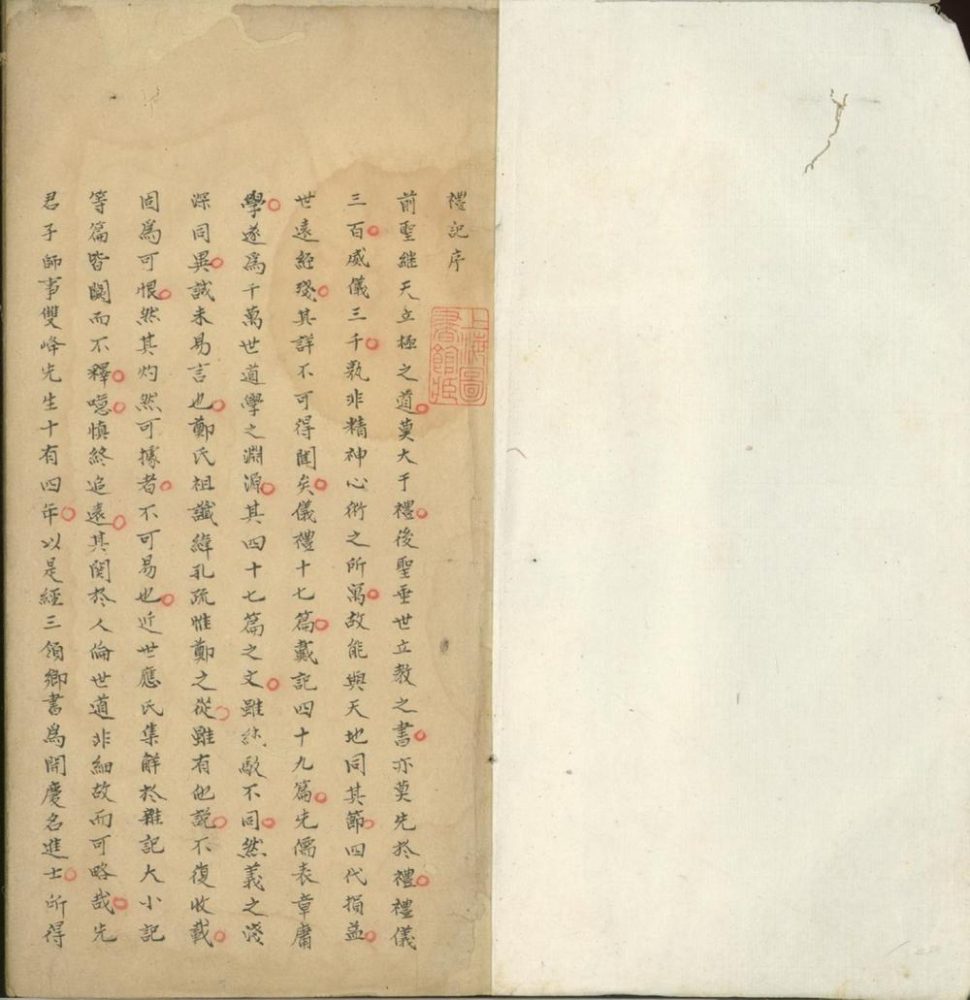 禮記序
前聖継天立極之道莫大于禮後聖垂世立教之書亦莫先於禮禮儀
三百威儀三千孰非精神心術之所寓故能與天地同其節四代損益
世遠經殘其詳不可得聞矣儀禮十七篇戴記四十九篇先儒表章庸
學遂爲千萬世道學之淵源其四十七篇之文雖純駁不同然義之淺
深同異誠未易言也鄭氏祖讖緯孔疏惟鄭之從雖有他説不復收載
固爲可恨然其灼然可據者不可易也近世應氏集解於雜記大小記
等篇皆闕而不釋噫慎終追遠其関於人倫世道非細故而可略哉先
君子師事雙峰先生十有四年以是經三領鄉書爲開慶名進士所得
上海圖
書館臧